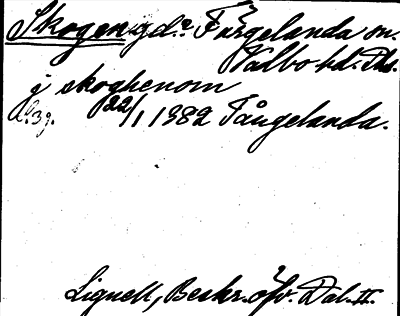 Skogen gd.? Färgelanda sn.
Valbo hd. Dls.
j skoghenom
22/1 1382 Fångelanda.
Lignell, Beskr. öfv. Dal. II.